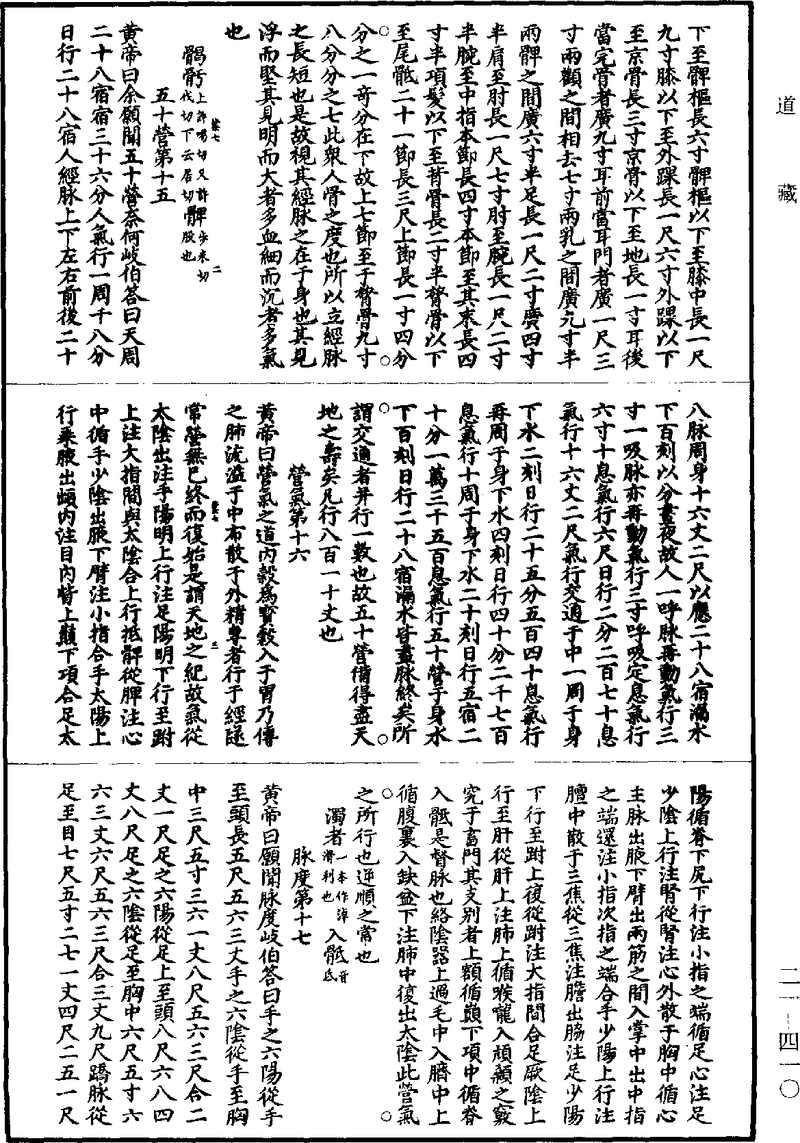 道藏
二一—四一〇
下至髀樞長六寸髀樞以下至膝中長一尺
九寸膝以下至外踝長一尺六寸外踝以下
至京骨長三寸京骨以下至地長一寸耳後
當完骨者廣九寸耳前當耳門者廣一尺三
寸兩顴之間相去七寸兩乳之間廣九寸半
兩髀之間廣六寸半足長一尺二寸廣四寸
半肩至肘長一尺七寸肘至腕長一尺二寸
半腕至中指本節長四寸本節至其末長四
寸半項髮以下至背骨長二寸半膂骨以下
至尾骶二十一節長三尺上節長一寸四分
分之一奇分在下故上七節至于膂骨九寸
八分分之七此衆人骨之度也所以立經脉
之長短也是故視其經脉之在于身也其見
浮而堅其見明而大者多血細而沉者多氣
也
䯏骬上許喝切又許伐切下云居切髀步米切髃股也
五十營第十五
黃帝曰余願聞五十營奈何岐伯答曰天周
二十八宿宿三十六分人氣行一周千八分
日行二十八宿人經脉上下左右前後二十
八脉周身十六丈二尺以應二十八宿漏水
下百刻以分晝夜故人一呼脉再動氣行三
寸一吸脉亦再動氣行三寸呼吸定息氣行
六寸十息氣行六尺日行二分二百七十息
氣行十六丈二尺氣行交通于中一周于身
下水二刻日行二十五分五百四十息氣行
再周于身下水四刻日行四十分二千七百
息氣行十周于身下水二十刻日行五宿二
十分一萬三千五百息氣行五十營于身水
下百刻日行二十八宿漏水皆盡脉終矣所
謂交通者并行一數也故五十營備得盡天
地之壽矣凡行八百一十丈也
營氣第十六
黃帝曰營氣之道內穀爲寶穀入于胃乃傳
之肺流溢于中布散于外精專者行于經隧
常營無已終而復始是謂天地之紀故氣從
太陰出注手陽明上行注足陽明下行至跗
上注大指間與太陰合上行抵髀從脾注心
中循手少陰出腋下臂注小指合手太陽上
行乘腋出䪼內注目內眥上巔下項合足太
陽循脊下尻下行注小指之端循足心注足
少陰上行注腎從腎注心外散于胸中循心
主脉出腋下臂出兩筋之間入掌中出中指
之端還注小指次指之端合手少陽上行注
膻中散于三焦從三焦注膽出脇注足少陽
下行至跗上復從跗注大指間合足厥陰上
行至肝從肝上注肺上循喉嚨入頏顙之竅
究于畜門其支別者上額循巔下項中循脊
入骶是督脉也絡陰器上過毛中入臍中上
循腹裏入缺盆下注肺中復出太陰此營氣
之所行也逆順之常也
濁者一本作淖滑利也入骶音氏
脉度第十七
黃帝曰願聞脉度岐伯答曰手之六陽從手
至頭長五尺五六三丈手之六陰從手至胸
中三尺五寸三六一丈八尺五六三尺合二
丈一尺足之六陽從足上至頭八尺六八四
丈八尺足之六陰從足至胸中六尺五寸六
六三丈六尺五六三尺合三丈九尺蹻脉從
足至目七尺五寸二七一丈四尺二五一尺